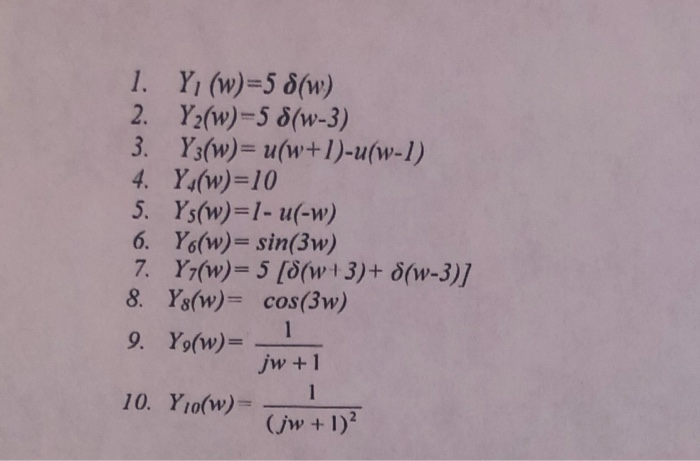 1. Y₁ (w)=5 δ(w)
2. Y₂(w)=5 δ(w-3)
3. Y₃(w)= u(w+1)-u(w-1)
4. Y₄(w)=10
5. Y₅(w)=1- u(-w)
6. Y₆(w)= sin(3w)
7. Y₇(w)= 5 [δ(w+3)+ δ(w-3)]
8. Y₈(w)= cos(3w)
9. Y₉(w)= 1/(jw + 1)
10. Y₁₀(w)= 1/(jw + 1)²